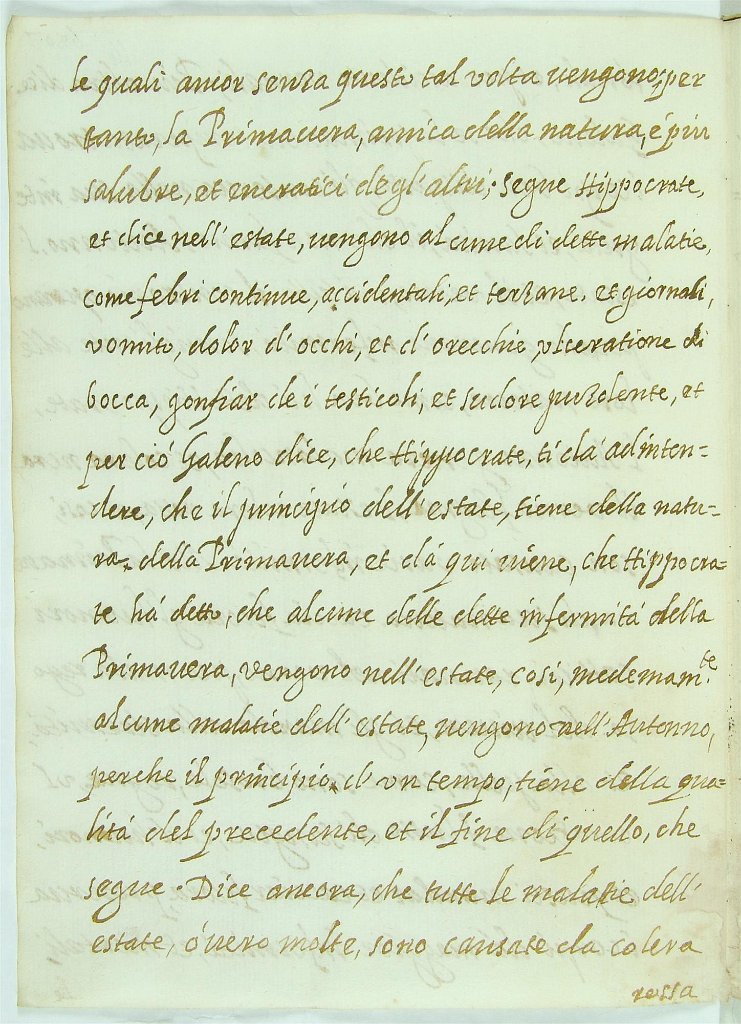 le quali ancor senza questo tal volta vengono; per
tanto, la Primauera, amica della natura, é piu
salubre, et eneratici degl'altri; segue Hippocrate,
et dice nell'estate, uengono alcune di dette malatie,
come febri continue, accidentali, et terzane. et giornali,
vomito, dolor d'occhi, et d'orecchie, vlceratione di
bocca, gonfiar de i testicoli, et sudore puzolente, et
per ció Galeno dice, che Hippocrate, ti dá ad inten=
dere, che il principio dell'estate, tiene della natu=
ra della Primauera, et dá qui uiene, che Hippocra=
te há detto, che alcune delle dette infermitá della
Primauera, vengono nell'estate, cosi, medemam.te
alcune malatie dell'estate, uengono nell'Autenno,
perche il principio d'vn tempo, tiene della qua=
litá del precedente, et il fine di quello, che
segue. Dice ancora, che tutte le malatie dell'
estate, ó uero molte, sono causate da colera
rossa